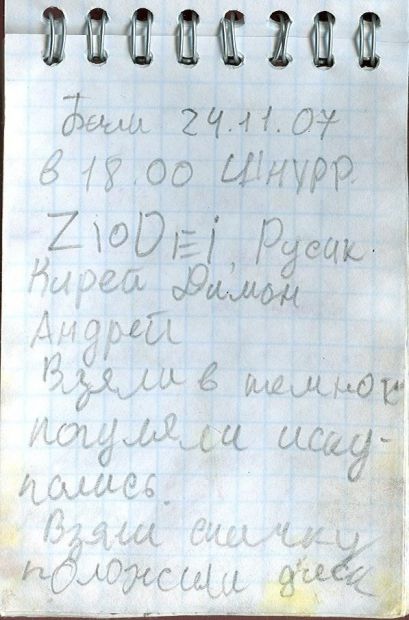 Были 24.11.07
в 18.00 Шнурр
ZioDEi, Русик
Кирей Димон
Андрей
Взяли в темноте
погуляли иску-
пались.
Взяли спичку
положили диск